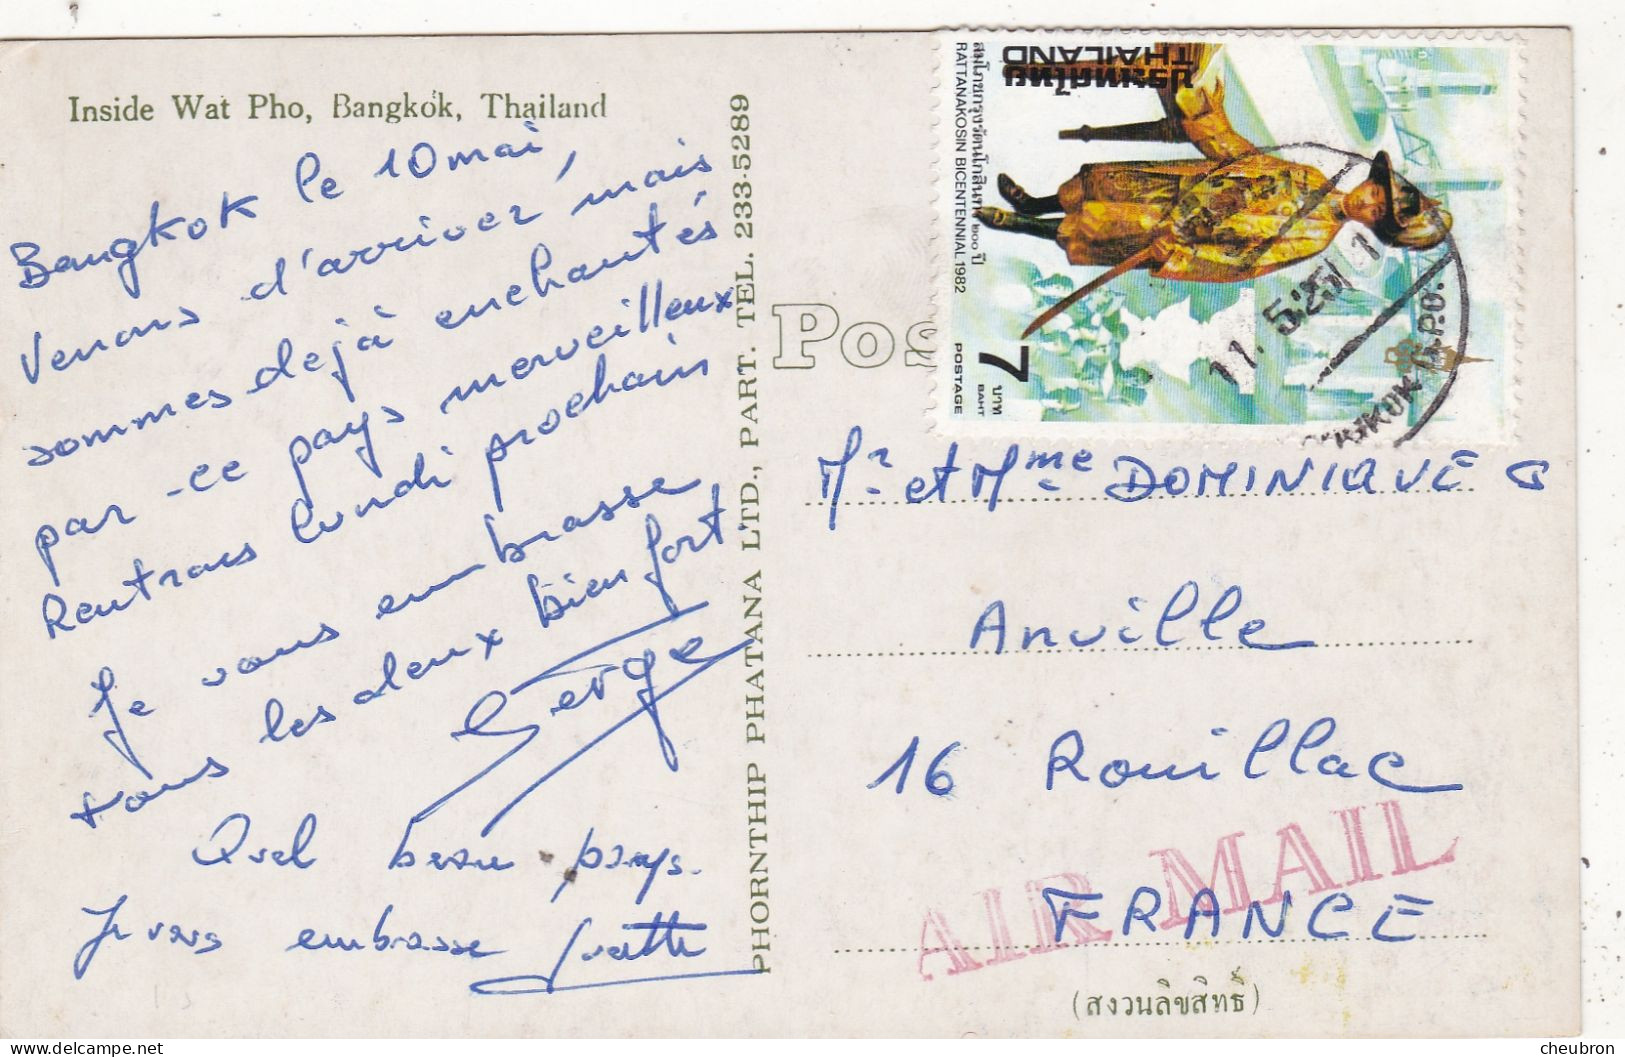 Inside Wat Pho, Bangkok, Thailand
Bangkok le 10 mai,
Venons d'arriver mais
sommes déjà enchantés
par ce pays merveilleux
Rentrons lundi prochain
Je vous embrasse
tous les deux bien fort.
Serge
Quel beau pays.
Je vous embrasse
PHORNTHIP PHATANA LTD., PART. TEL. 233-5289
Pos
ประเทศไทย
THAILAND
สมโภชกรุงรัตนโกสินทร์ ๒๐๐ ปี
RATTANAKOSIN BICENTENNIAL 1982
7
บาท
BAHT
POSTAGE
11. 5:25 1
BANGKOK G.P.O.
Mr et Mme DOMINIQUE G
Anville
16 Rouillac
FRANCE
AIR MAIL
(สงวนลิขสิทธิ์)
cheubron
delcampe.net